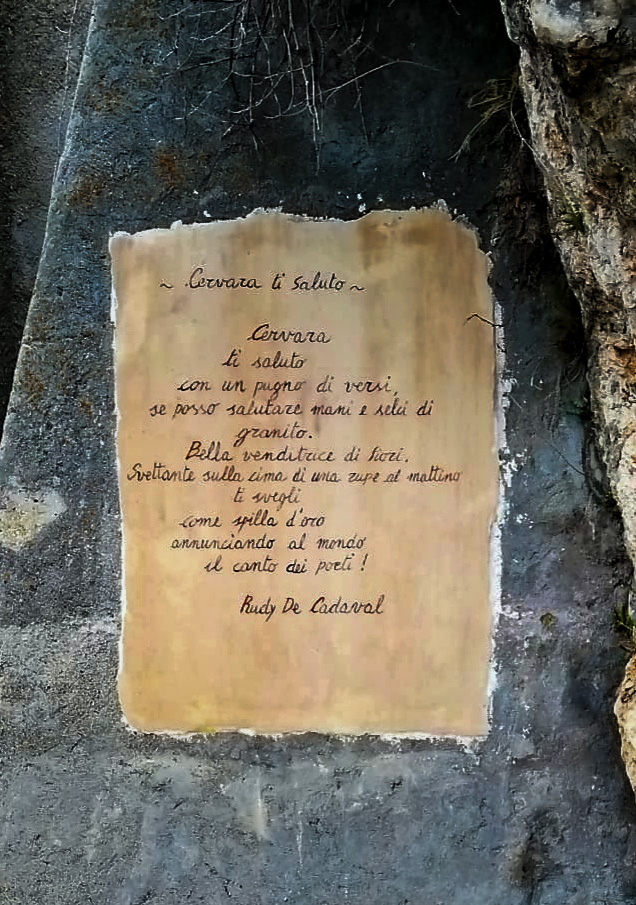 ~ Cervara ti saluto ~
Cervara
ti saluto
con un pugno di versi,
se posso salutare mani e selci di
granito.
Bella venditrice di fiori.
Svettante sulla cima di una rupe al mattino
ti svegli
come spilla d'oro
annunciando al mondo
il canto dei poeti!
Rudy De Cadaval